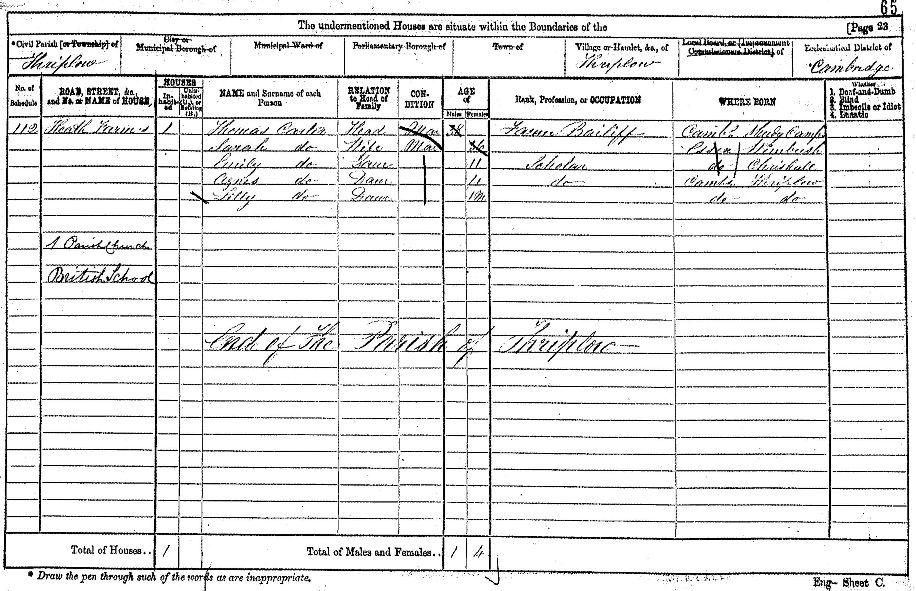 65
The undermentioned Houses are situate within the Boundaries of the [Page 23
*Civil Parish [or Township] of City or Municipal Borough of Municipal Ward of Parliamentary Borough of Town of Village or Hamlet, &c., of Local Board, or [Improvement Commissioners District] of Ecclesiastical District of
Thriplow Thriplow Cambridge
No. of Schedule ROAD, STREET, &c., and No. or NAME of HOUSE HOUSES In-habited Uninhabited (U.), or Building (B.) NAME and Surname of each Person RELATION to Head of Family CON-DITION AGE of Males Females Rank, Profession, or OCCUPATION WHERE BORN Whether 1. Deaf-and-Dumb 2. Blind 3. Imbecile or Idiot 4. Lunatic
112 Heath Farm 1 Thomas Head Mar Farm Bailiff Camb
Sarah do Wife Mar 36 Essex Wimbish
Emily do Daur 11 Scholar do Chrishall
Agnes do Daur do Cambs Thriplow
Lilly do Daur do do
1 Parish Church
British School
End of The Parish of Thriplow
Total of Houses.. 1 Total of Males and Females.. 1 4
* Draw the pen through such of the words as are inappropriate.
Eng- Sheet C.